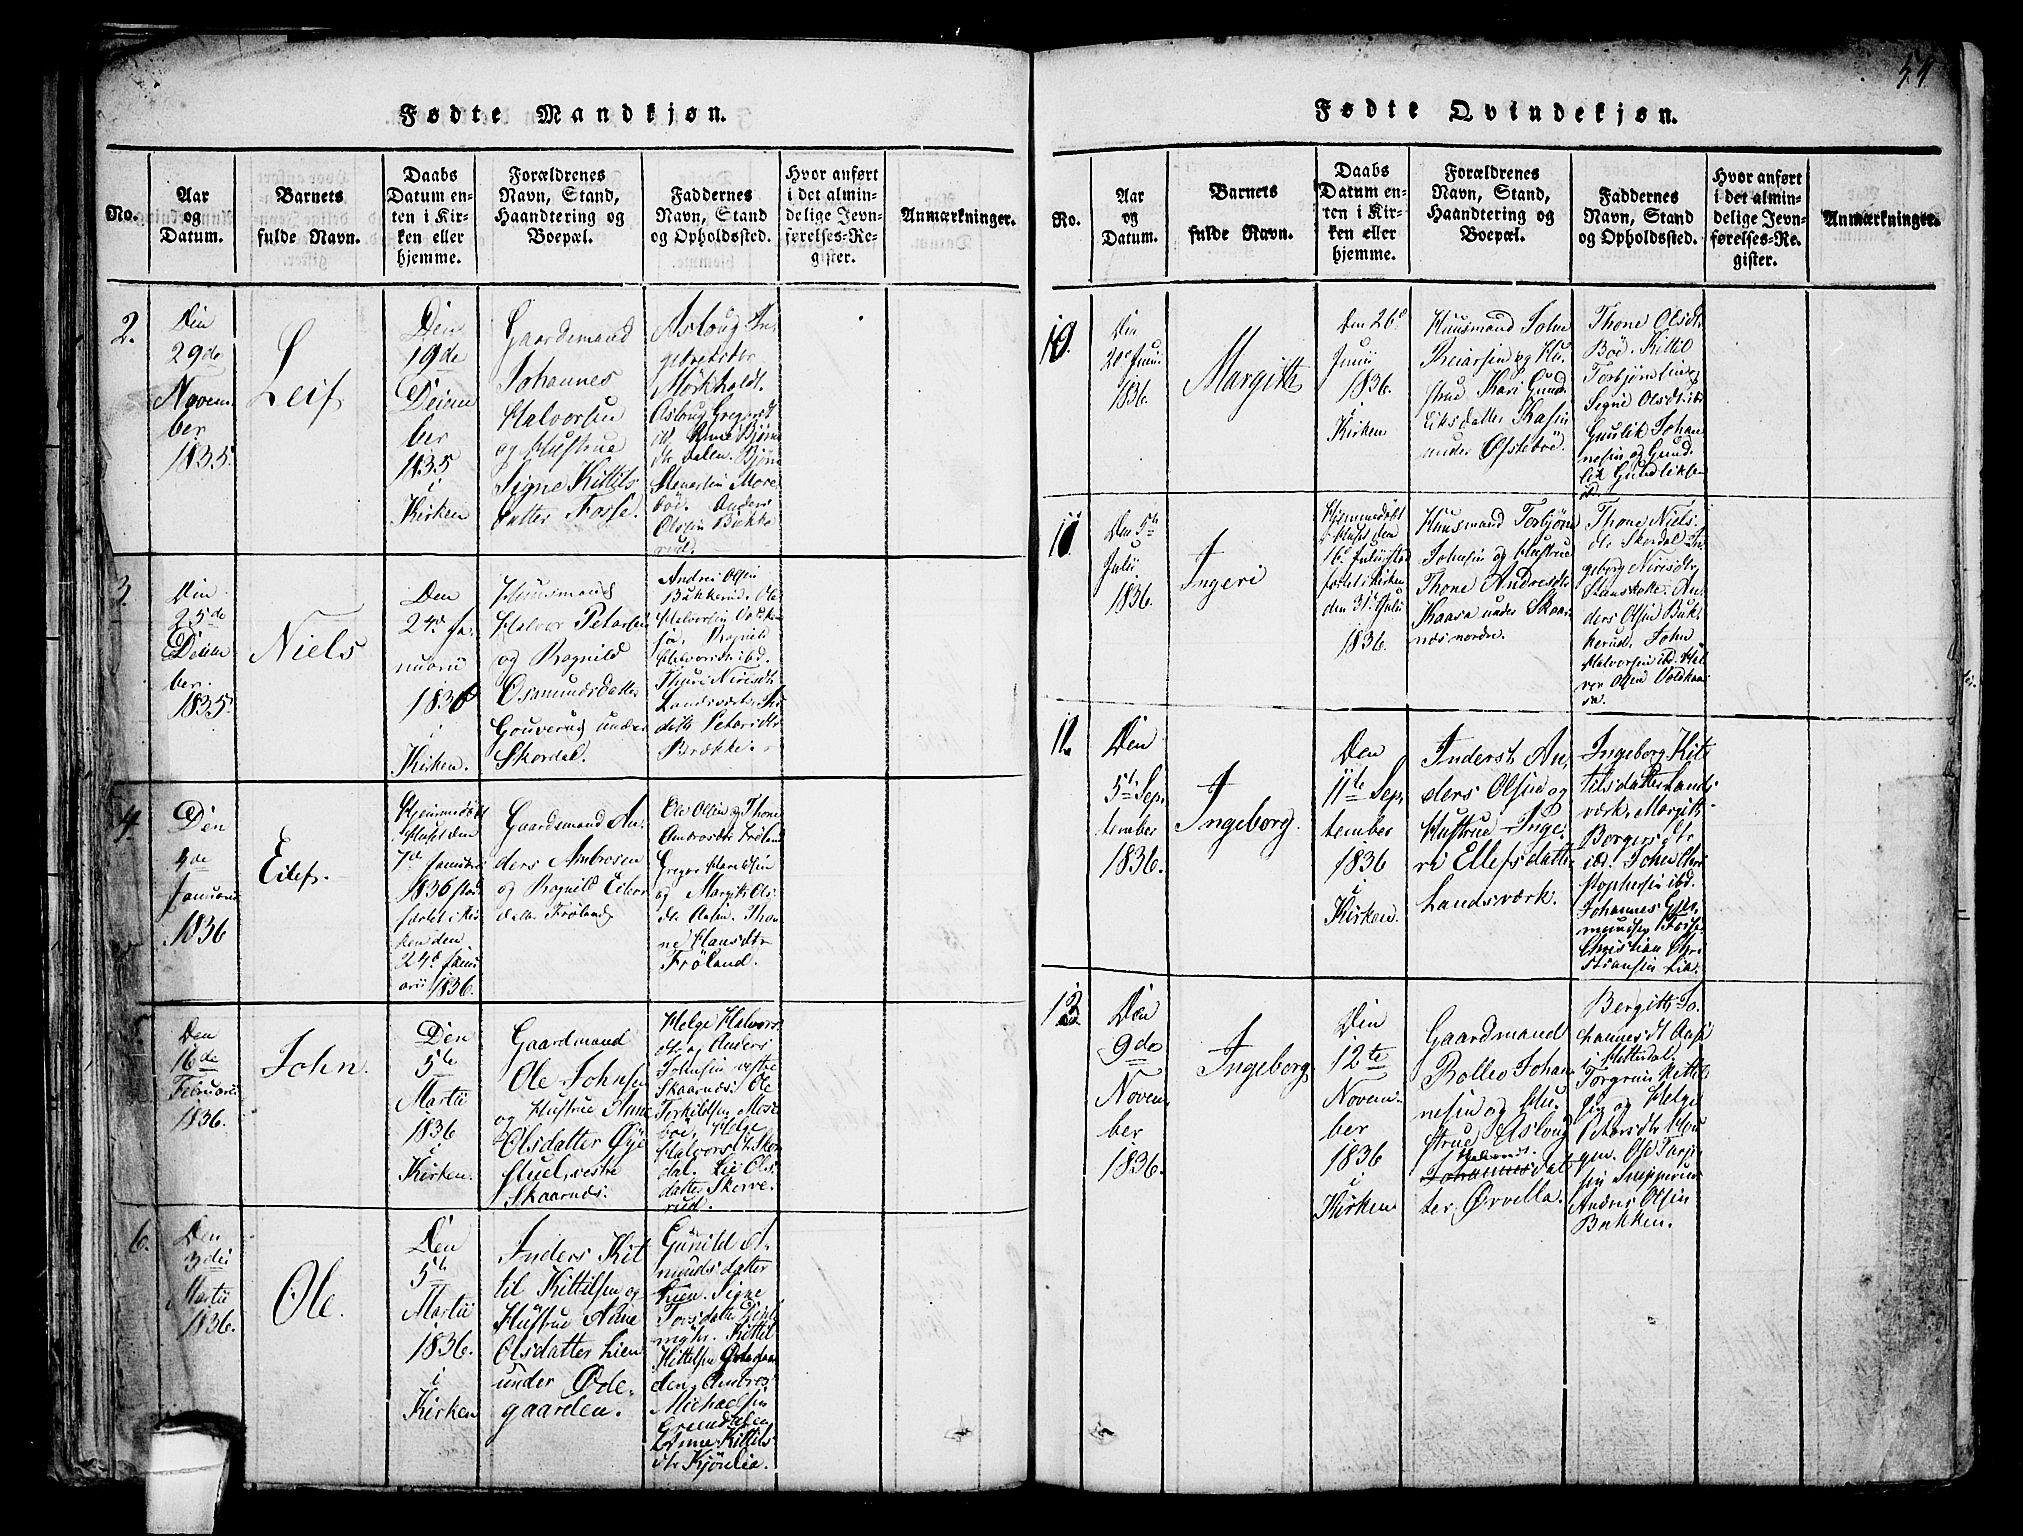 54
Fødte Mandkjøn.
No.
Aar
og
Datum.
Barnets
fulde Navn.
Daabs
Datum en-
ten i Kir-
ken eller
hjemme.
Forældrenes
Navn, Stand,
Haandtering og
Boepæl.
Faddernes
Navn, Stand
og Opholdssted.
Hvor anført
i det almin-
delige Jevn-
førelses-Re-
gister.
Anmærkninger.
2.
Den
29de
Novem
ber
1835.
Leif
Den
19de
Decem
ber
1835
i
Kirken
Gaardemand
Johannes
Halvorsen
og Hustrue
Signe Kittils
datter Fosse.
Aslaug In
gebretsdtr
Mörkholdt.
Aslaug Gregersdt
og Anne Björns
dtr Dalen. Björn
Stenersen More
böe. Anders
Olsen Bukke
rud.
3.
Den
25de
Decem
ber.
1835.
Niels
Den
24de Ja-
nuarii
1836
i
Kirken.
Huusmand
Halvor Petersen
og Rognild
Osmundsdatter
Gouverud under
Skordal.
Andres Olsen
Bukkerud. Ole
Halvorsen Voldkaa
sa. Rognild
Halvorsdtr ibd.
Thuri Nirisdtr
Landsværk.
dette Petersdtr
Brække.
4.
Den
4de
Januarii
1836
Eilef.
Hjemmedöbt
i Huset den
7de Januarii
1836 stad
fæstet i Kir
ken den
24de Janu
arii 1836.
Gaardmand An
ders Ambrosen
og Rognild Eilevs
datter Fröland
Ole Olsen og Thone
Ambrosdtr Fröland
Gregar Hansen
og Margith Ols
dtr Aasen. Thon
ne Hansdtr
Fröland.
Den
16de
Februarii
1836.
John.
Den
5te
Martii
1836
i
Kirken.
Gaardmand
Ole Johnsen
og Hustrue Anne
Olsdatter Øye
stuel, vestre
Skaarnæs.
Helge Halvors
dtr og Anders
Johnsen vestre
Skaarnæs. Ole
Torkildsen Mose
böe. Helge
Halvorsdt Skor
dal. Liv Ols
datter Skerve
rud.
6.
Den
3die
Martii
1836.
Ole.
Den
5te
Martii
1836.
i
Kirken
Inders Kit
til Kittilsen og
Hustrue Anne
Olsdatter Lien
under Øde-
gaarden.
Gunild A-
munds datter
Lien. Signe
Torsdatter
Kittil
Kittilsen Ødegaar
den, Ambros
Michaelsen
Gröndalen
Anne Kittils
dtr Kjönlia.
Fødte Qvindekjøn.
No.
Aar
og
Datum.
Barnets
fulde Navn.
Daabs
Datum en-
ten i Kir-
ken eller
hjemme.
Forældrenes
Navn, Stand,
Haandtering og
Boepæl.
Faddernes
Navn, Stand
og Opholdssted.
Hvor anført
i det almin-
delige Jevn-
førelses-Re-
gister.
Anmærkninger.
10.
Den
20de Junii
1836.
Margith
Den 26de
Junii
1836.
i
Kirken
Huusmand John
Reiarsen og Hu-
strue Kari Gund
leiksdatter Kasin
under Ofstebröe.
Thone Olsdtr
Böe. Kittil
Torbjörnsen og
Signe Olsdtr ibd
Gunlik Johan
nesen og Gund
lik Gundliksen
ibd.
11
Den 5te
Julii
1836.
Ingeri
Hjemmedöbt
i Huset den
16de Julii, stad
fæstet i Kirken
den 31te Julii
1836.
Huusmand Torbjörn
Johnsen og Hustrue
Thone Andresdtr
Kaasa under Skaar
næs nordre.
Thone Niels
dtr Skordal. In
geborg Nirisdtr
Stensholte. An
ders Olsen Buk
kerud. John
Halvorsen ibd. Hal
vor Olsen Voldkaa
sa.
12
Den
5te Sep
tember
1836.
Ingeborg.
Den
11te Sep
tember
1836
i
Kirken.
Inderst An
ders Olsen og
Hustrue Inge
ri Ellefsdatter
Landsværk.
Ingeborg Kit
tilsdatter Lands
værk. Margith
Borgersdtr
ibd. John Chri
stophersen ibd.
Johannes Gun
mundsen Fosse
Christian Chri
stiansen Lia.
13.
Den
9de
Novem
ber
1836.
Ingeborg
Den
12te
Novem-
ber
1836
i
Kirken
Gaardmand
Rollev Johan
nesen og Hu-
strue Aslaug
Halvors
Johannesdat
ter Ørvella.
Bergith Jo
hannesdt Aase
i Hitterdal.
Torgrim Kittil
sen og Helge
Petersdtr Hou
gen. Ole Tarje
sen Snepperud
Andres Olsen
Bakken.